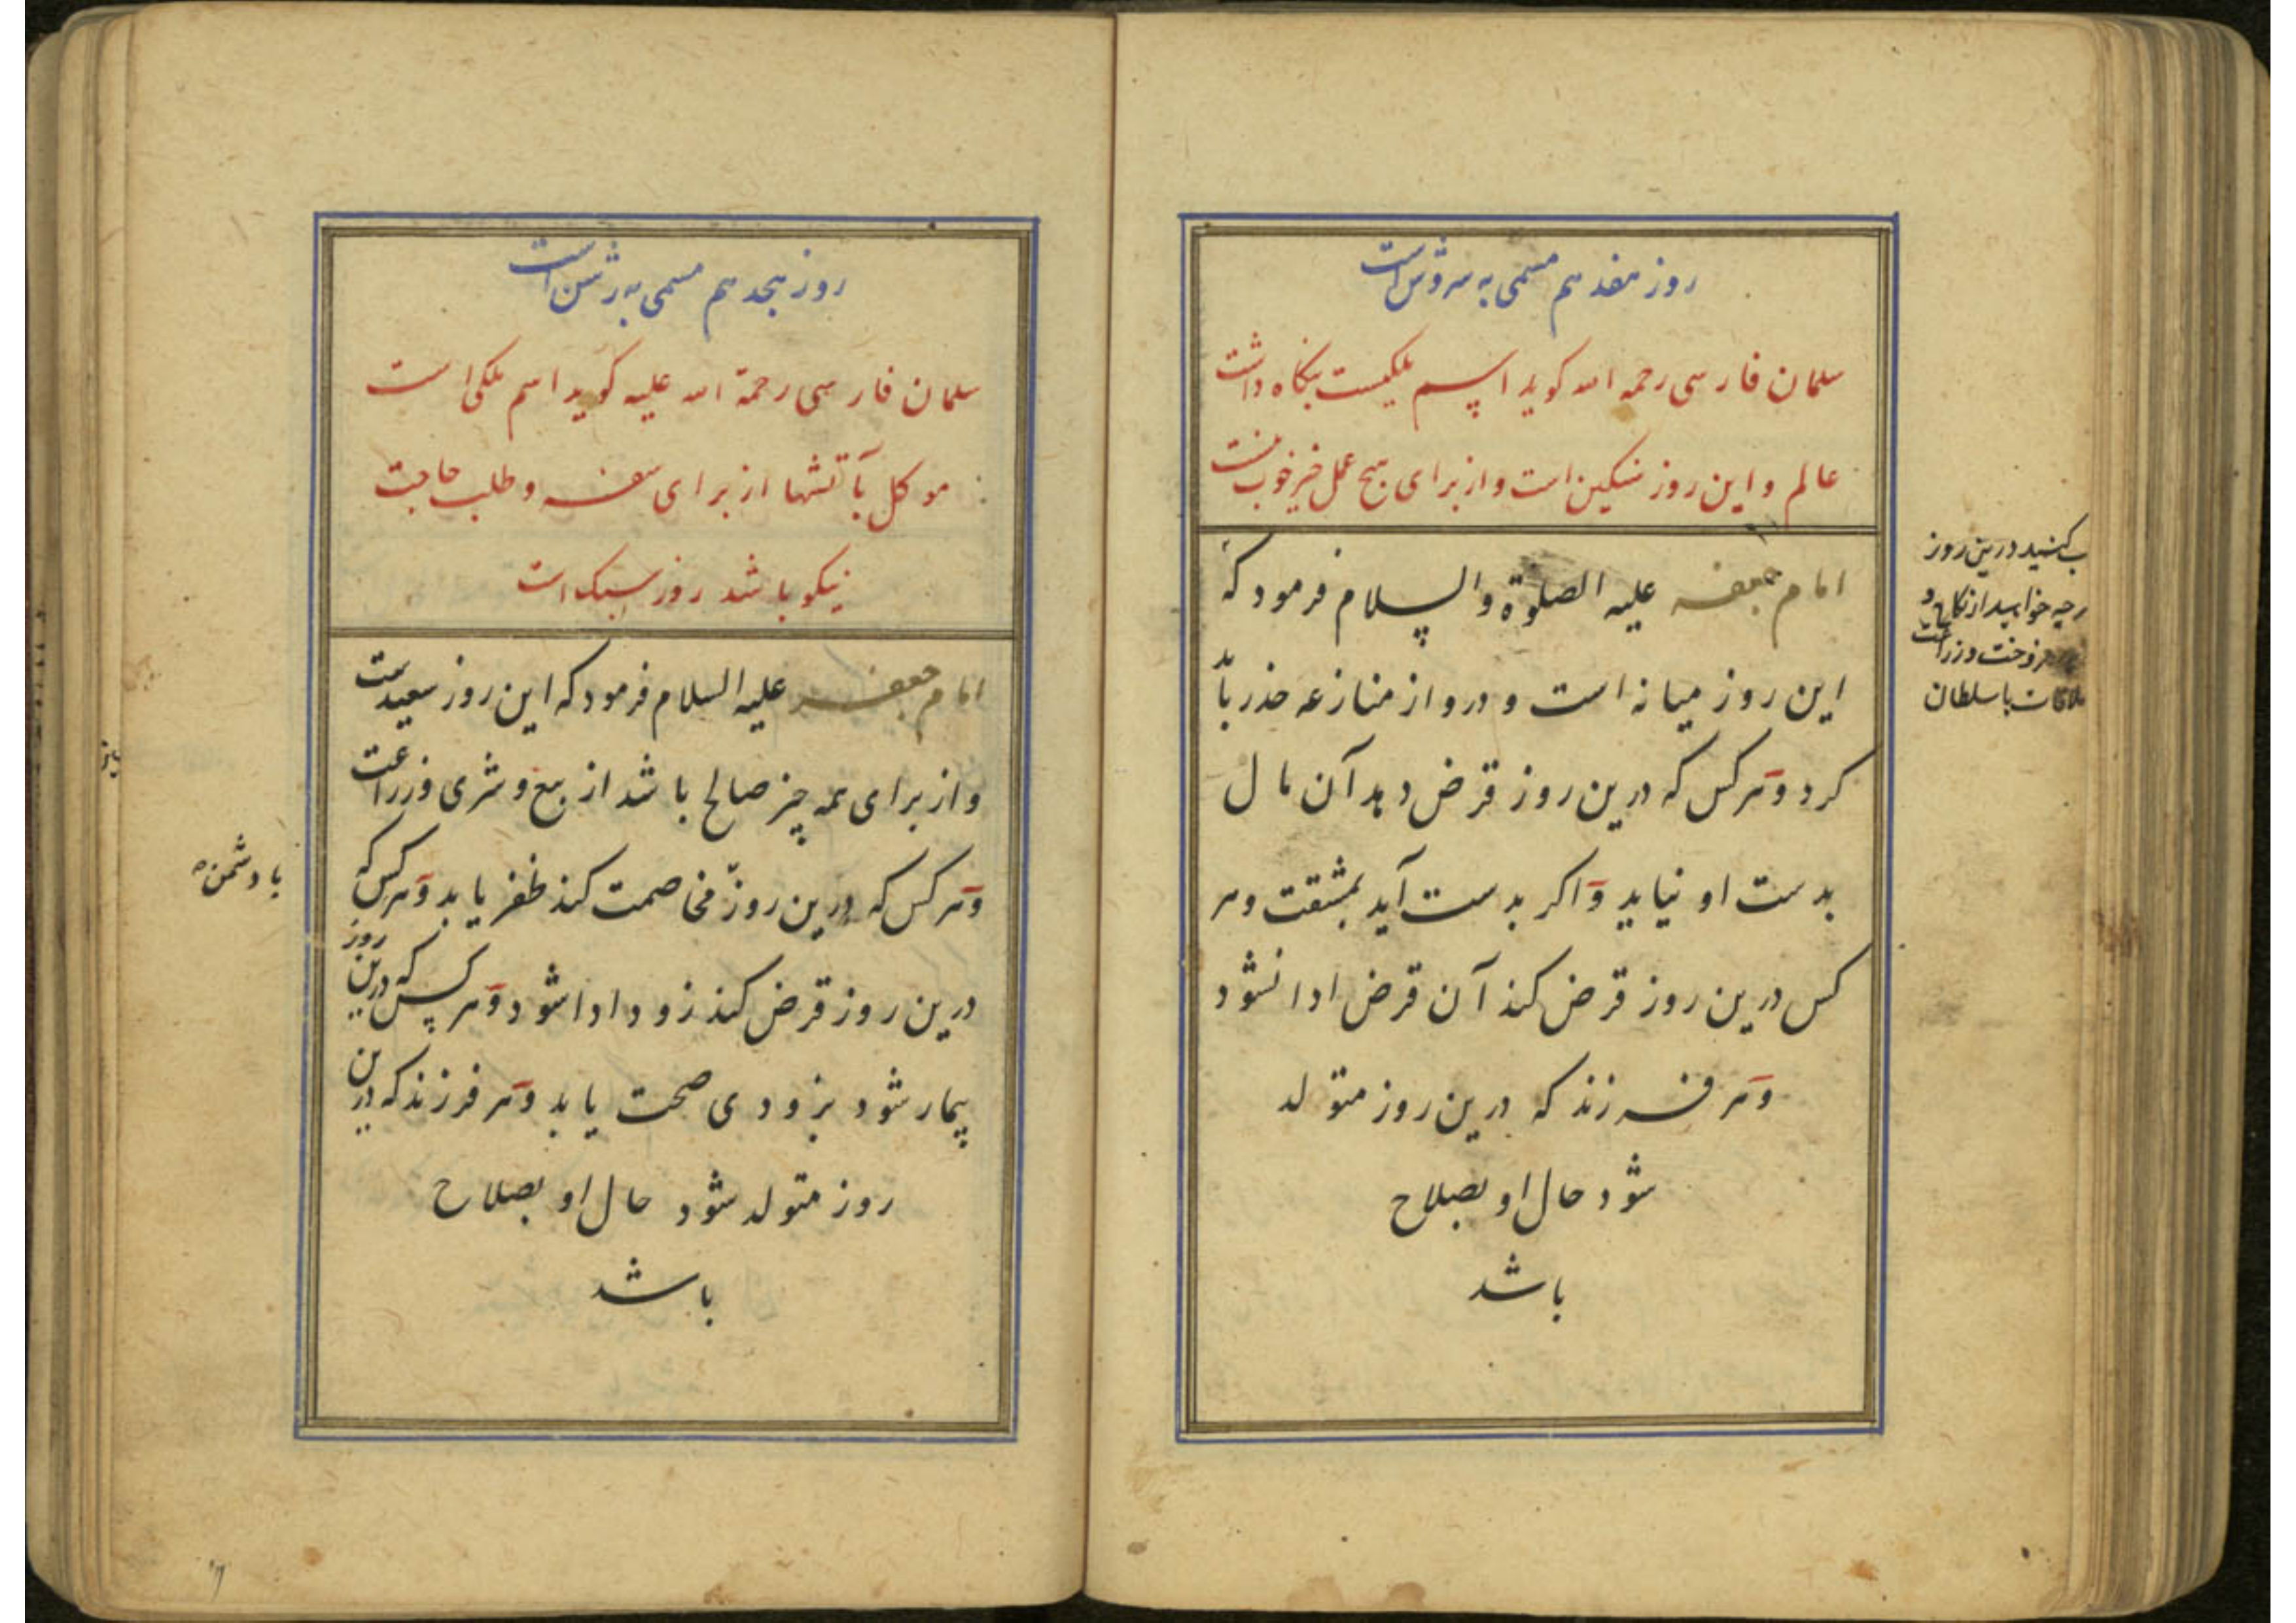 روز هفدهم مسمی به سروش است
سلمان فارسی رحمه الله کوید اسم ملکیست نکاه داشت
عالم و این روز سنکین است و از برای هیچ عمل خیر خوب نیست
امام جعفر علیه الصلوة والسلام فرمود که
این روز میانه است و درو از منازعه حذر باید
کرد و هر کس که درین روز قرض دهد آن مال
بدست او نیاید و اکر بدست آید بمشقت و هر
کس درین روز قرض کند آن قرض ادا نشود
و هر فرزند که درین روز متولد
شود حال او بصلاح
باشد
کنید درین روز
خواهید از نکاح و
فروخت و زراعت
ملاقات با سلطان
روز هجدهم مسمی به رشن است
سلمان فارسی رحمة الله علیه کوید اسم ملکی است
موکل بآتشها از برای سفر و طلب حاجت
نیکو باشد روز سبک است
امام جعفر علیه السلام فرمود که این روز سعیدست
و از برای همه چیز صالح باشد از بیع و شری و زراعت
و هر کس که درین روز مخاصمت کند ظفر یابد و هر کس که
درین روز قرض کند زود ادا شود و هر کس که درین روز
بیمار شود بزودی صحت یابد و هر فرزند که درین
روز متولد شود حال او بصلاح
باشد
با دشمن